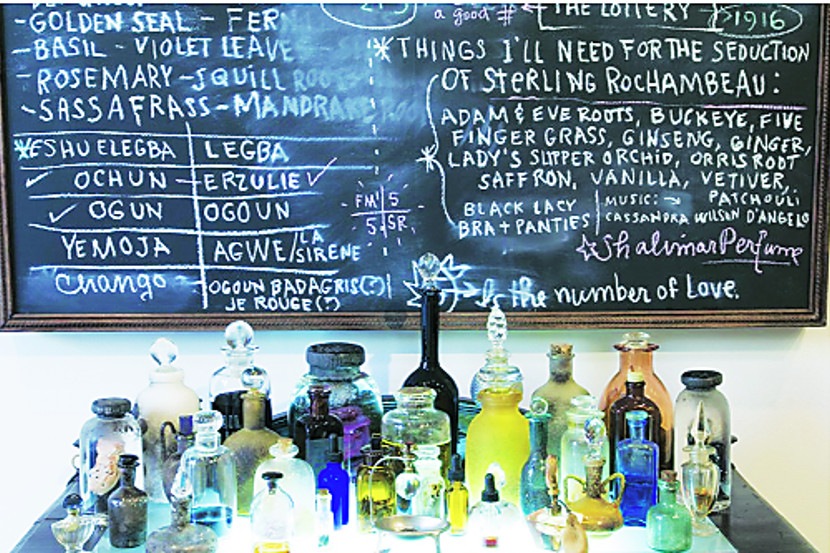 -GOLDEN SEAL - FER
-BASIL - VIOLET LEAVE
-ROSEMARY-JQUILL ROOT
-SASSAFRASS-MANDRAKE ROO
*ESHU ELEGBA LEGBA
✓ OCHUN - ERZULIE ✓
✓ OGUN OGOUN
YEMOJA AGWE/LA SIRENE
Chango - OGOUN BADAGRIS(?)
JE ROUGE(?)
FM 5
5 SR
a good # THE LOTTERY 1916
*THINGS I'LL NEED FOR THE SEDUCTION
OF STERLING ROCHAMBEAU:
ADAM & EVE ROOTS, BUCKEYE, FIVE
FINGER GRASS, GINSENG, GINGER,
*LADY'S SLIPPER ORCHID, ORRIS ROOT
SAFFRON, VANILLA, VETIVER,
PATCHOULI
BLACK LACY
BRA + PANTIES
MUSIC: →
CASSANDRA WILSON D'ANGELO
☆Shalimar Perfume
Is the number of Love.